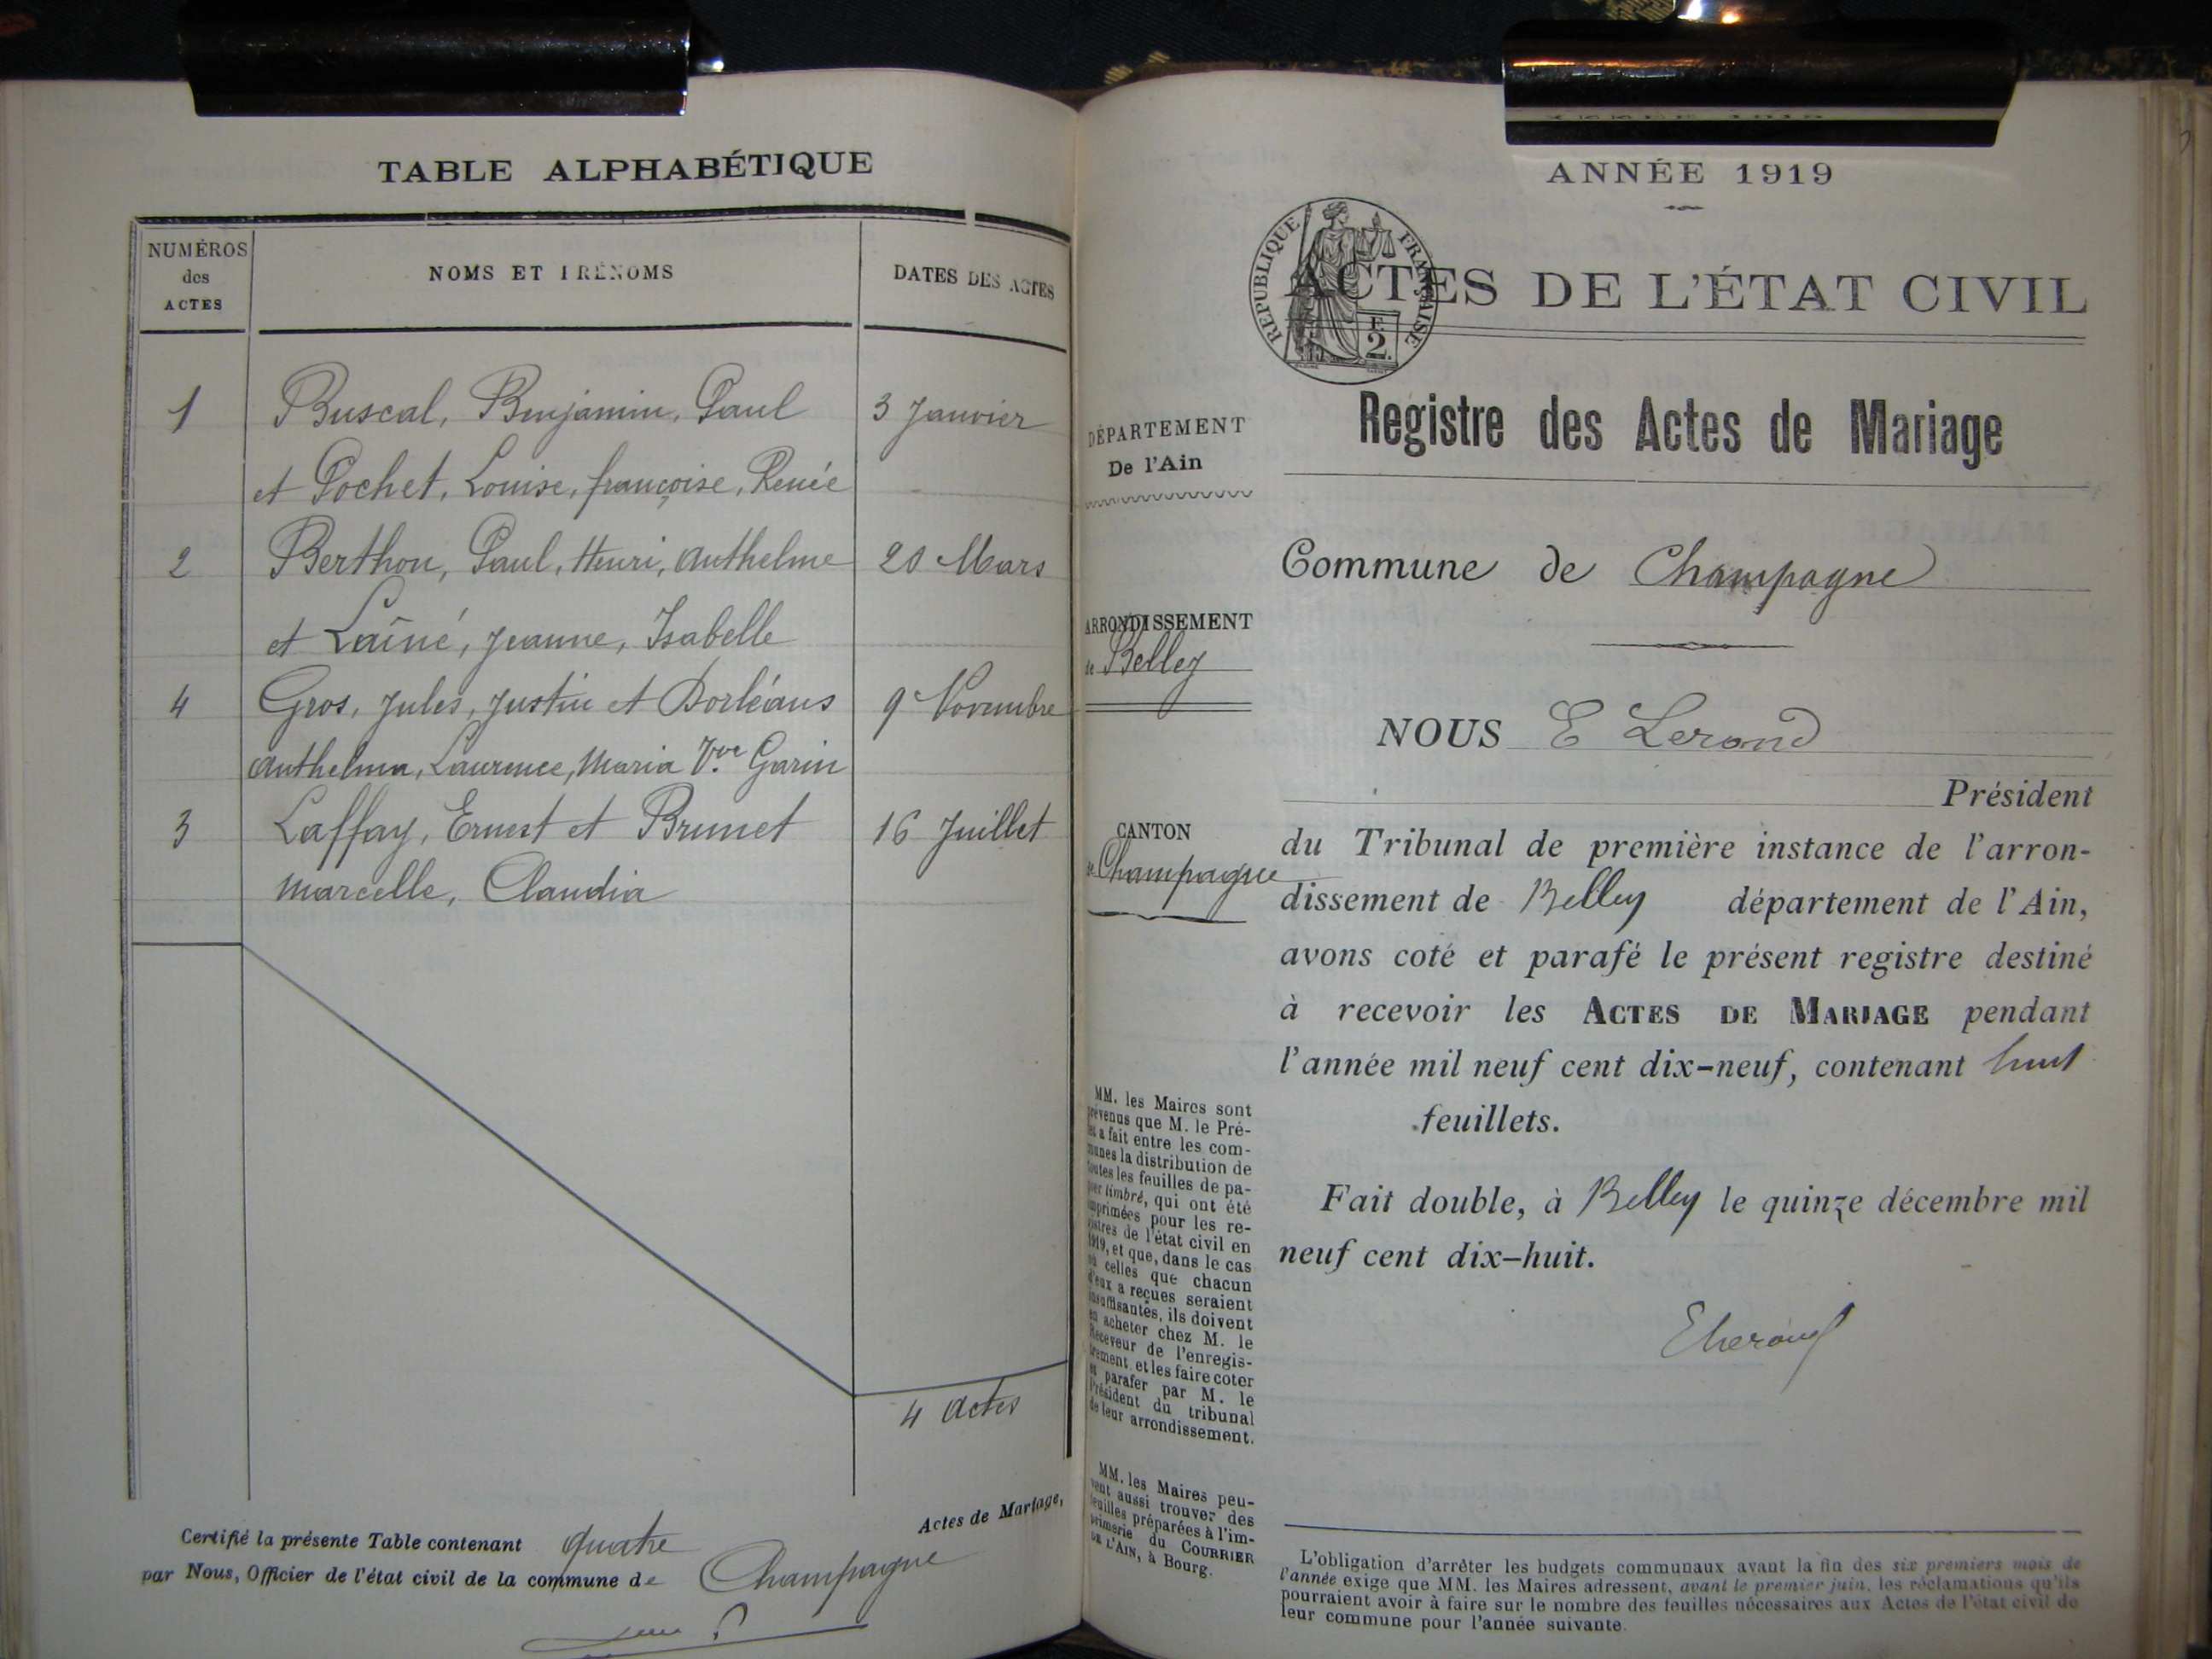 TABLE ALPHABÉTIQUE
NUMÉROS
des
ACTES
NOMS ET PRÉNOMS
DATES DES ACTES
1
Buscal, Benjamin, Paul
3 Janvier
et Pochet, Louise, françoise, Renée
2
Berthou, Paul, Henri, Anthelme
20 Mars
et Laîné, Jeanne, Isabelle
4
Gros, Jules, Justin et Dorléans
9 Novembre
Anthelma, Laurence, Maria Vve Garin
3
Laffay, Ernest et Brunet
16 Juillet
Marcelle, Claudia
4 actes
Certifié la présente Table contenant quatre Actes de Mariage,
par Nous, Officier de l'état civil de la commune de Champagne
ANNÉE 1919
RÉPUBLIQUE FRANÇAISE
2
ACTES DE L'ÉTAT CIVIL
Registre des Actes de Mariage
DÉPARTEMENT
De l'Ain
ARRONDISSEMENT
de Belley
CANTON
de Champagne
MM. les Maires sont
prévenus que M. le Pré-
fet a fait entre les com-
munes la distribution de
toutes les feuilles de pa-
pier timbré, qui ont été
imprimées pour les re-
gistres de l'état civil en
1919, et que, dans le cas
où celles que chacun
d'eux a reçues seraient
insuffisantes, ils doivent
en acheter chez M. le
Receveur de l'enregis-
trement et les faire coter
et parafer par M. le
Président du tribunal
de leur arrondissement.
MM. les Maires peu-
vent aussi trouver des
feuilles préparées à l'im-
primerie du COURRIER
DE L'AIN, à Bourg.
Commune de Champagne
NOUS E Lerond
Président
du Tribunal de première instance de l'arron-
dissement de Belley département de l'Ain,
avons coté et parafé le présent registre destiné
à recevoir les ACTES DE MARIAGE pendant
l'année mil neuf cent dix-neuf, contenant huit
feuillets.
Fait double, à Belley le quinze décembre mil
neuf cent dix-huit.
L'obligation d'arrêter les budgets communaux avant la fin des six premiers mois de
l'année exige que MM. les Maires adressent, avant le premier juin, les réclamations qu'ils
pourraient avoir à faire sur le nombre des feuilles nécessaires aux Actes de l'état civil de
leur commune pour l'année suivante.